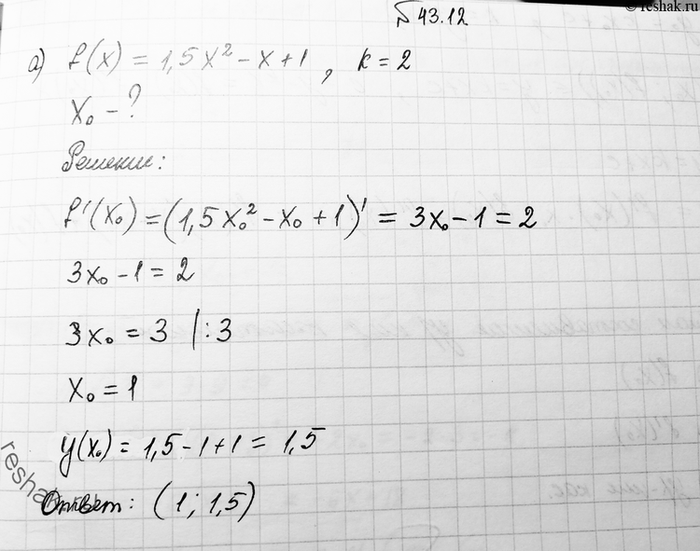 © reshak.ru
№ 43.12
а) f(x) = 1,5x² - x + 1, k = 2
x₀ - ?
Решение:
f'(x₀) = (1,5x₀² - x₀ + 1)' = 3x₀ - 1 = 2
3x₀ - 1 = 2
3x₀ = 3 |:3
x₀ = 1
y(x₀) = 1,5 - 1 + 1 = 1,5
Ответ: (1; 1,5)